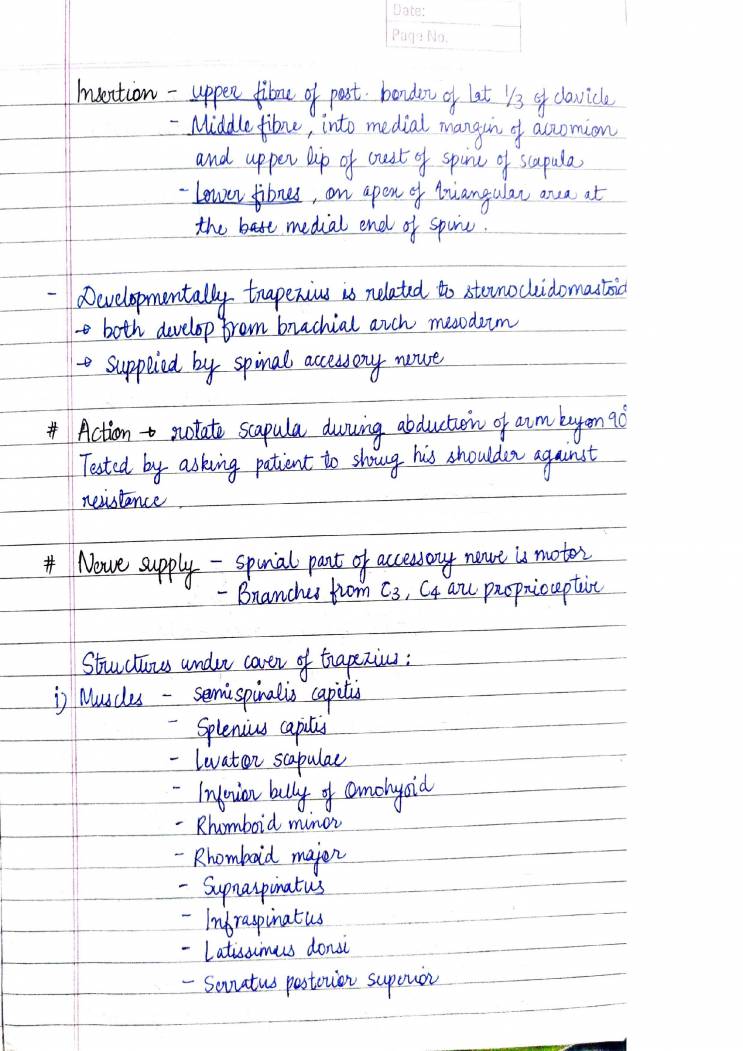 Date:
Page No.
Insertion - upper fibre of post. border of lat 1/3 of clavicle
- Middle fibre, into medial margin of acromion
and upper lip of crest of spine of scapula
- Lower fibres, on apex of triangular area at
the base medial end of spine.
- Developmentally trapezius is related to sternocleidomastoid
→ both develop from brachial arch mesoderm
→ supplied by spinal accessory nerve
# Action → rotate scapula during abduction of arm beyon 90°
Tested by asking patient to shrug his shoulder against
resistance.
# Nerve supply - spinal part of accessory nerve is motor
- Branches from C3, C4 are proprioceptive
Structures under cover of trapezius:
i) Muscles - semispinalis capitis
- Splenius capitis
- levator scapulae
- Inferior belly of Omohyoid
- Rhomboid minor
- Rhomboid major
- Supraspinatus
- Infraspinatus
- Latissimus dorsi
- Serratus posterior superior